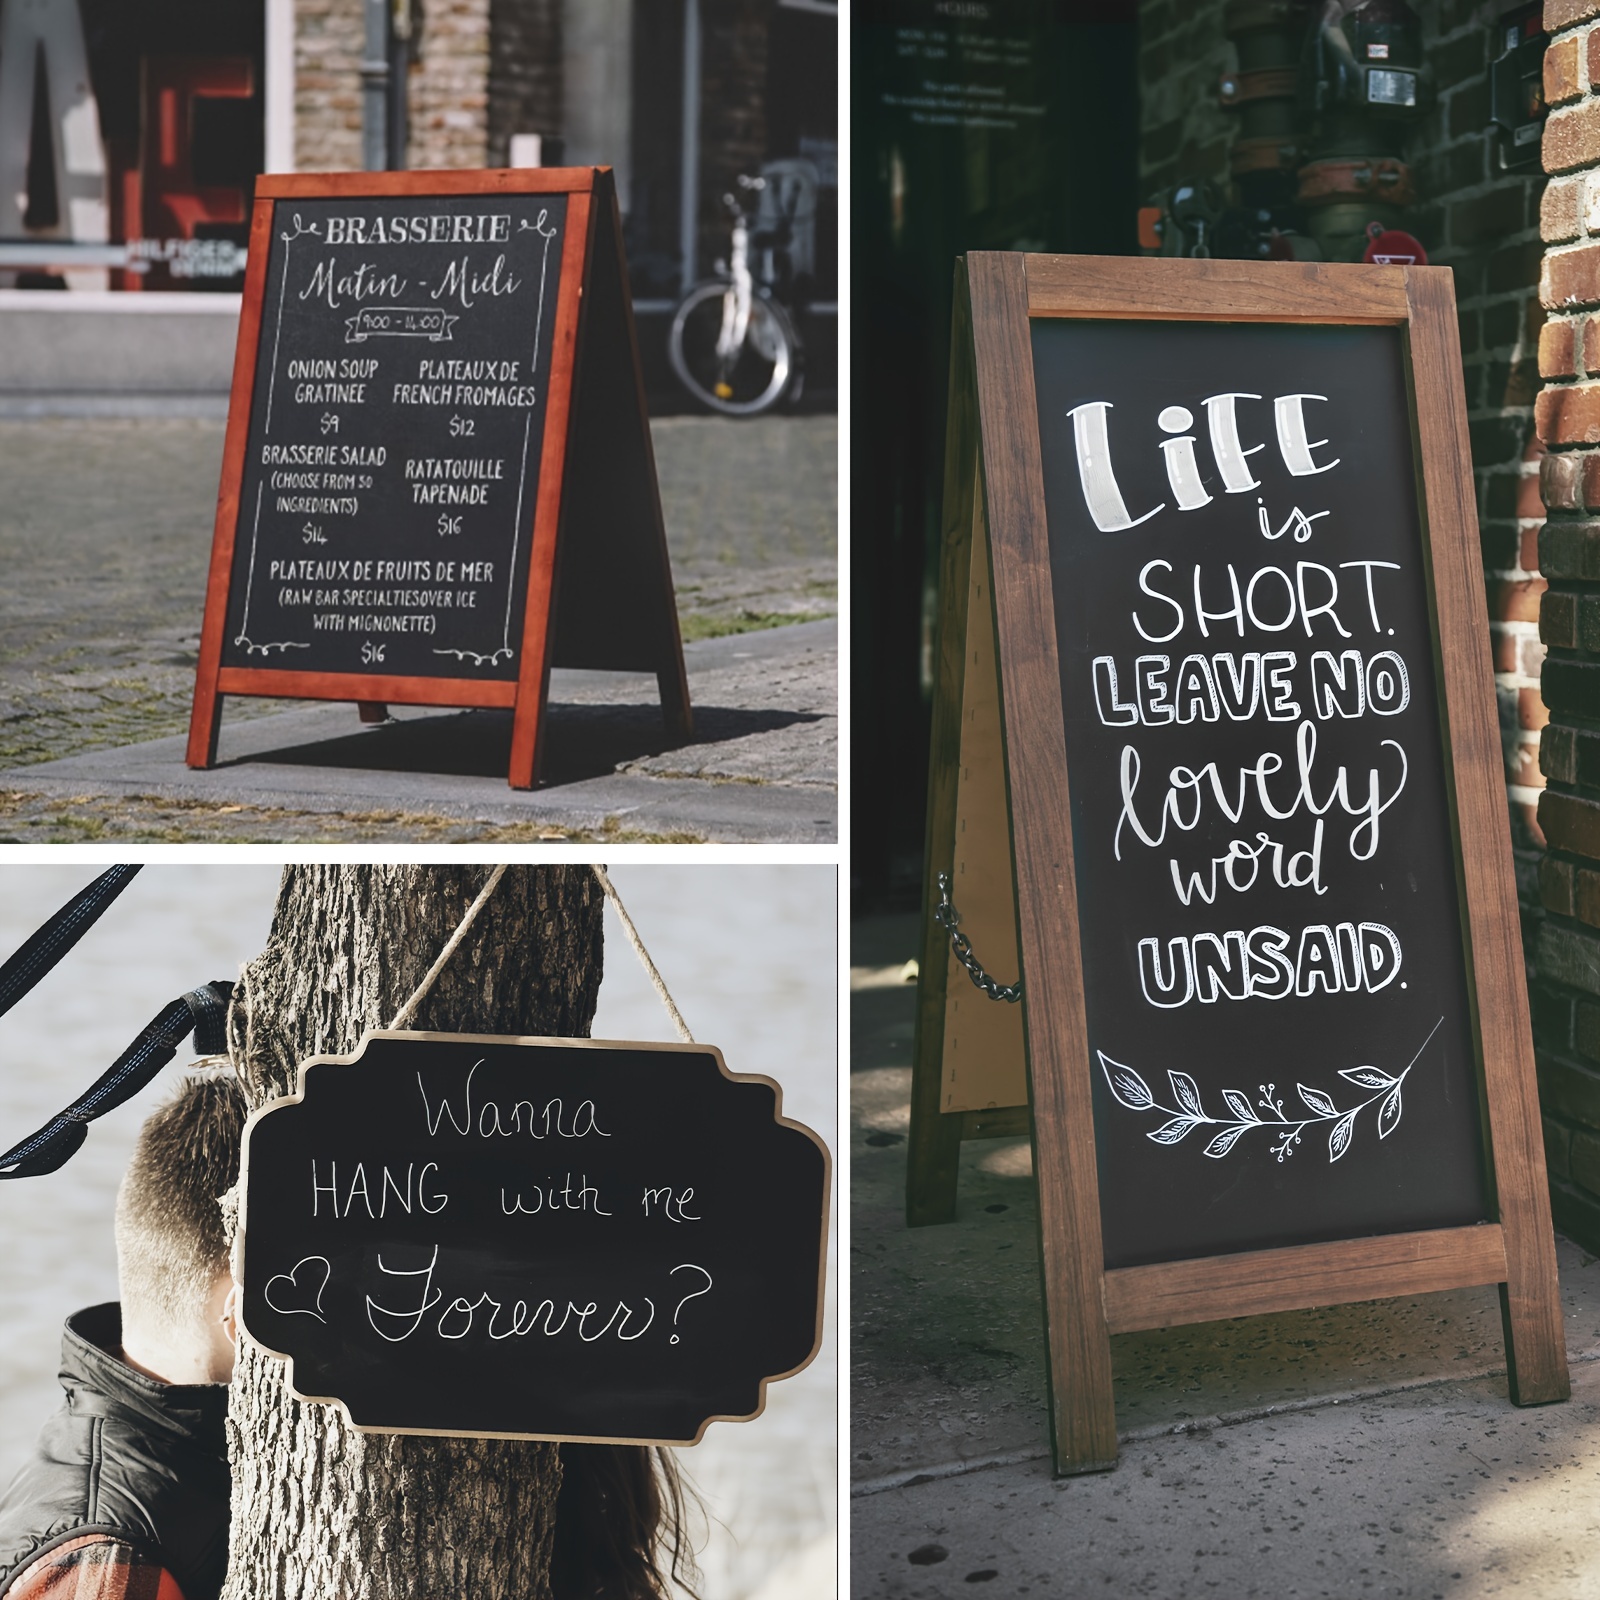 HILFIGER
DENIM
BRASSERIE
Matin - Midi
9:00 - 14:00
ONION SOUP
GRATINEE
$9
PLATEAUX DE
FRENCH FROMAGES
$12
BRASSERIE SALAD
(CHOOSE FROM 30
INGREDIENTS)
$14
RATATOUILLE
TAPENADE
$16
PLATEAUX DE FRUITS DE MER
(RAW BAR SPECIALTIESOVER ICE
WITH MIGNONETTE)
$16
Wanna
HANG with me
Forever?
HOURS
LiFE
is
SHORT.
LEAVE NO
lovely
word
UNSAID.